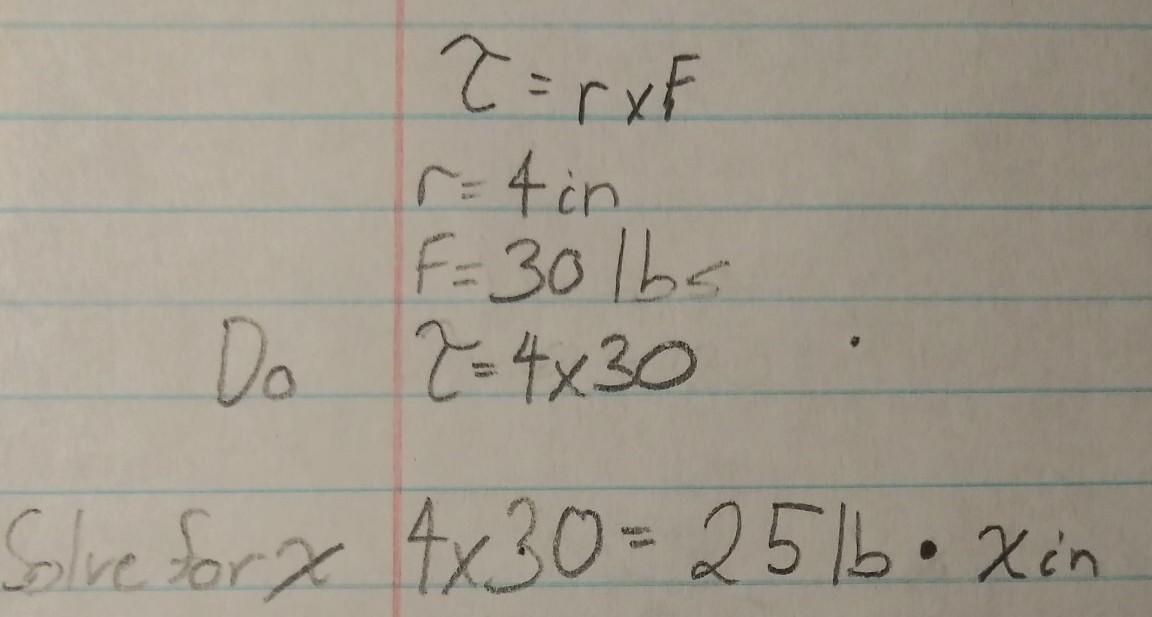 τ = r x F
r = 4 in
F = 30 lbs
Do τ = 4 x 30
Solve for x 4 x 30 = 25 lb • x in